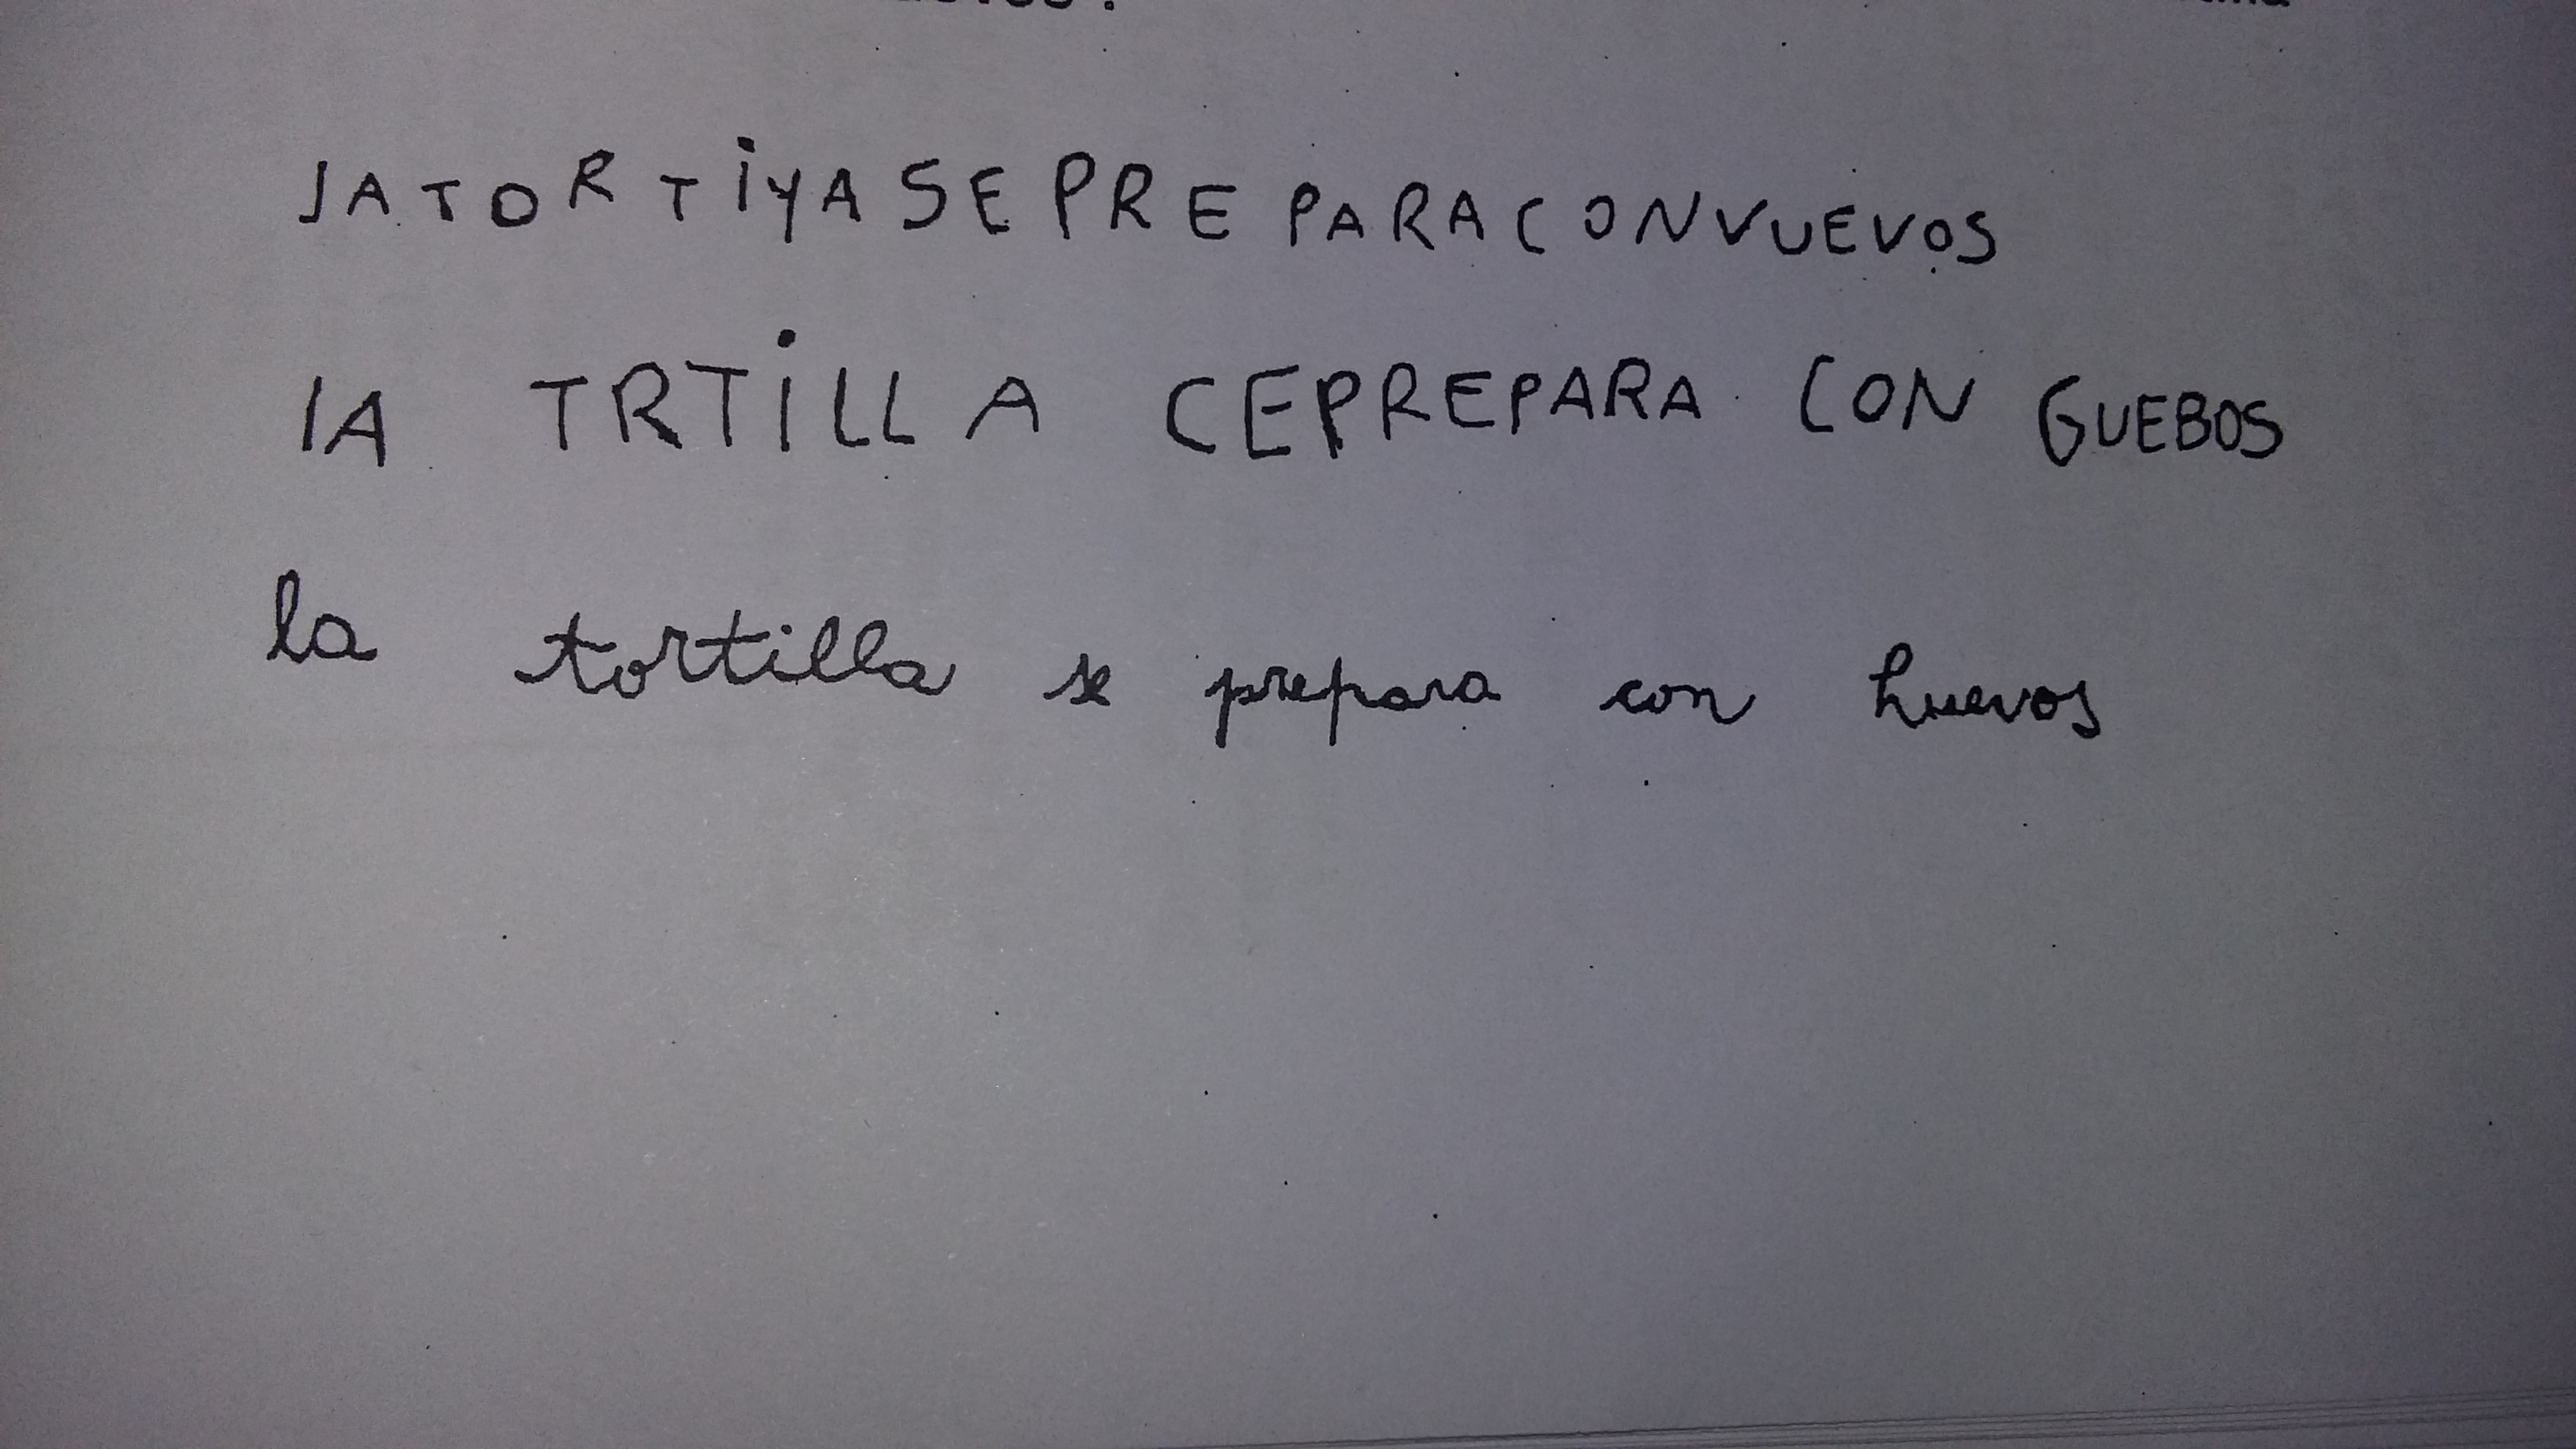 JATORTiYASEPREPARACONVUEVOS
lA TRTiLLA CEPREPARA CON GUEBOS
la tortilla se prepara con huevos